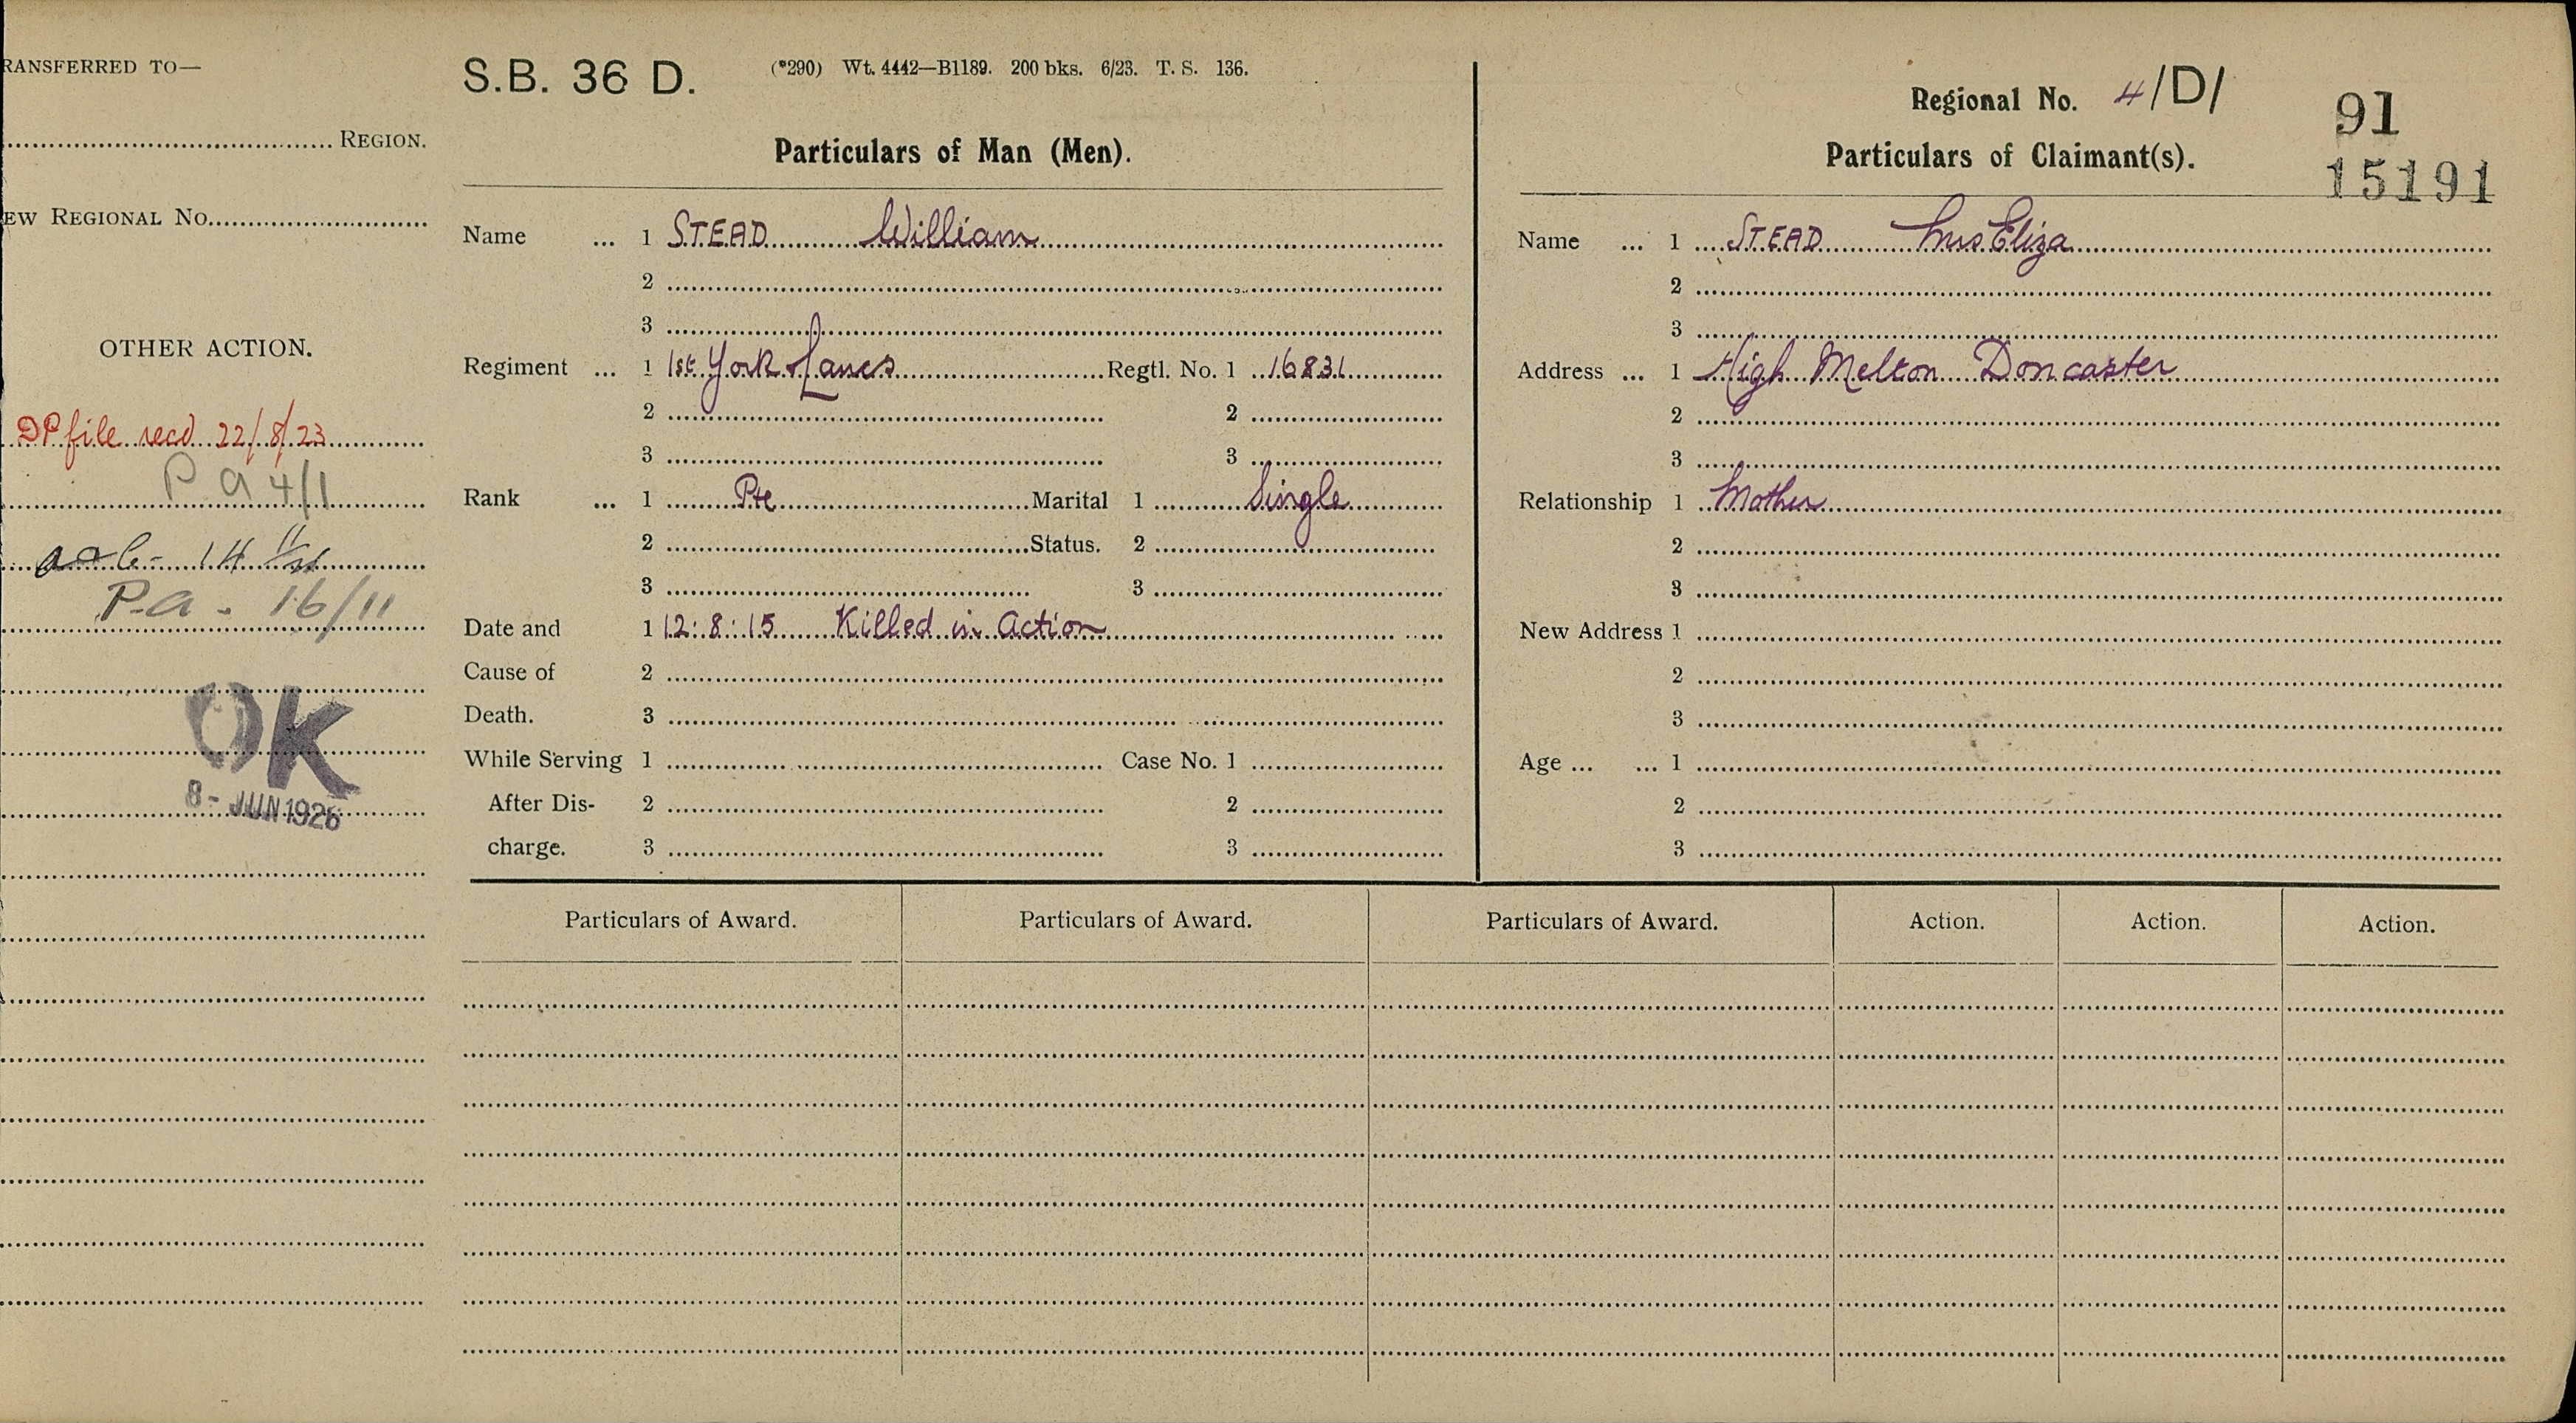 RANSFERRED TO—
REGION.
EW REGIONAL NO.
OTHER ACTION.
DP file recd 22/8/23
P a 4/1
14
P.a. 16/11
OK
8 - JUN 1926
S.B. 36 D.
(*290) Wt. 4442—B1189. 200 bks. 6/23. T. S. 136.
Particulars of Man (Men).
Name ... 1 STEAD William
2
3
Regiment ... 1 1st York & Lancs Regtl. No. 1 16831
2 2
3 3
Rank ... 1 Pte Marital 1 Single
2 Status. 2
3 3
Date and 1 12:8:15 Killed in Action
Cause of 2
Death. 3
While Serving 1 Case No. 1
After Dis- 2 2
charge. 3 3
Regional No. 4/D/ 91
Particulars of Claimant(s).
15191
Name ... 1 STEAD Mrs Eliza
2
3
Address ... 1 High Melton Doncaster
2
3
Relationship 1 Mother
2
3
New Address 1
2
3
Age ... ... 1
2
3
Particulars of Award. Particulars of Award. Particulars of Award. Action. Action. Action.